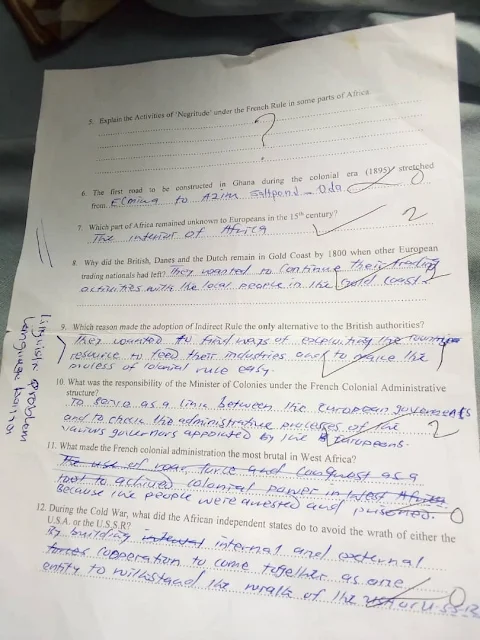 5. Explain the Activities of 'Negritude' under the French Rule in some parts of Africa
?
6. The first road to be constructed in Ghana during the colonial era (1895) stretched
from Elmina to Axim Saltpond - Oda
0
7. Which part of Africa remained unknown to Europeans in the 15th century?
The interior of Africa
2
8. Why did the British, Danes and the Dutch remain in Gold Coast by 1800 when other European
trading nationals had left? They wanted to continue their trading
activities with the local people in the gold coast
9. Which reason made the adoption of Indirect Rule the only alternative to the British authorities?
They wanted to find ways of exploiting the
resource to feed their industries and to make the
process of colonial rule easy.
Linguistic problem
Language barrier
10. What was the responsibility of the Minister of Colonies under the French Colonial Administrative
structure?
To serve as a link between the european governments
and to check the administrative processes of the
various governors appointed by the Europeans.
2
11. What made the French colonial administration the most brutal in West Africa?
The use of war, force and conquest as a
tool to achieved colonial power in West Africa
Because the people were arrested and prisoned.
0
12. During the Cold War, what did the African independent states do to avoid the wrath of either the
U.S.A. or the U.S.S.R?
By building internal and external
forces cooperation to come together as one
entity to withstand the wrath of the USA or U.S.S.R
0